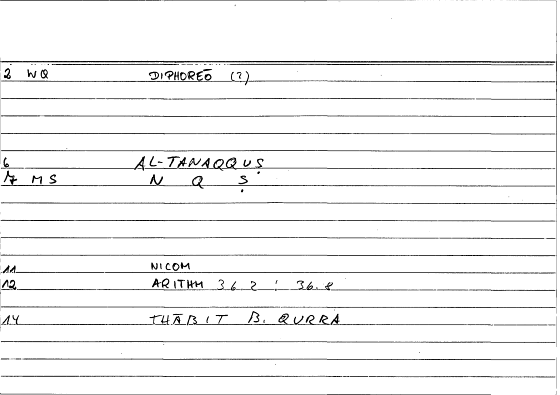 2 WQ DIPHOREŌ (?)
6 AL-TANAQQUṢ
7 MS N Q Ṣ
11 NICOM
12 ARITHM 36.2 ; 36.8
14 THĀBIT B. QURRA